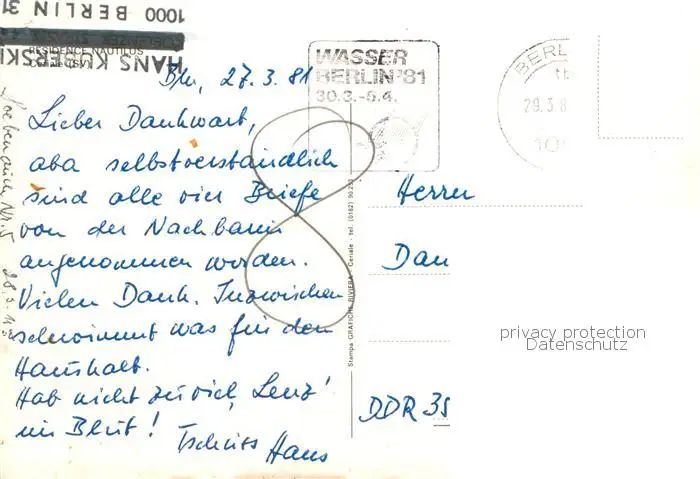 1000 BERLIN 31
HANS KUBERSKI
RESIDENCE NAUTILUS
Bln, 27.3.81
Lieber Dankwart,
aba selbstverständlich
sind alle vier Briefe
von der Nachbarin
angenommen worden.
Vielen Dank. Inzwischen
schwimmt was für den
Haushalt.
Hab nicht zuviel, Lenz'
im Blut!
Tschüss Hans
WASSER
BERLIN '81
30.3.-5.4.
BERL
29.3.8
Stampa GRAFICHE RIVIERA - Ceriale - tel. (0182)
Herrn
Dan
DDR 35
privacy protection
Datenschutz